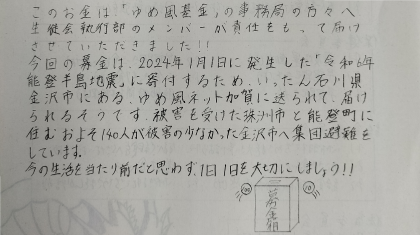 このお金は、「ゆめ風基金」の事務局の方々へ
生徒会執行部のメンバーが責任をもって届け
させていただきました!!
今回の募金は、2024年1月1日に発生した「令和6年
能登半島地震」に寄付するため、いったん石川県
金沢市にある、ゆめ風ネット加賀に送られて、届け
られるそうです。被害を受けた珠洲市と能登町に
住むおよそ140人が被害の少なかった金沢市へ集団避難を
しています。
今の生活を当たり前だと思わず、1日1日を大切にしましょう!!
募金箱